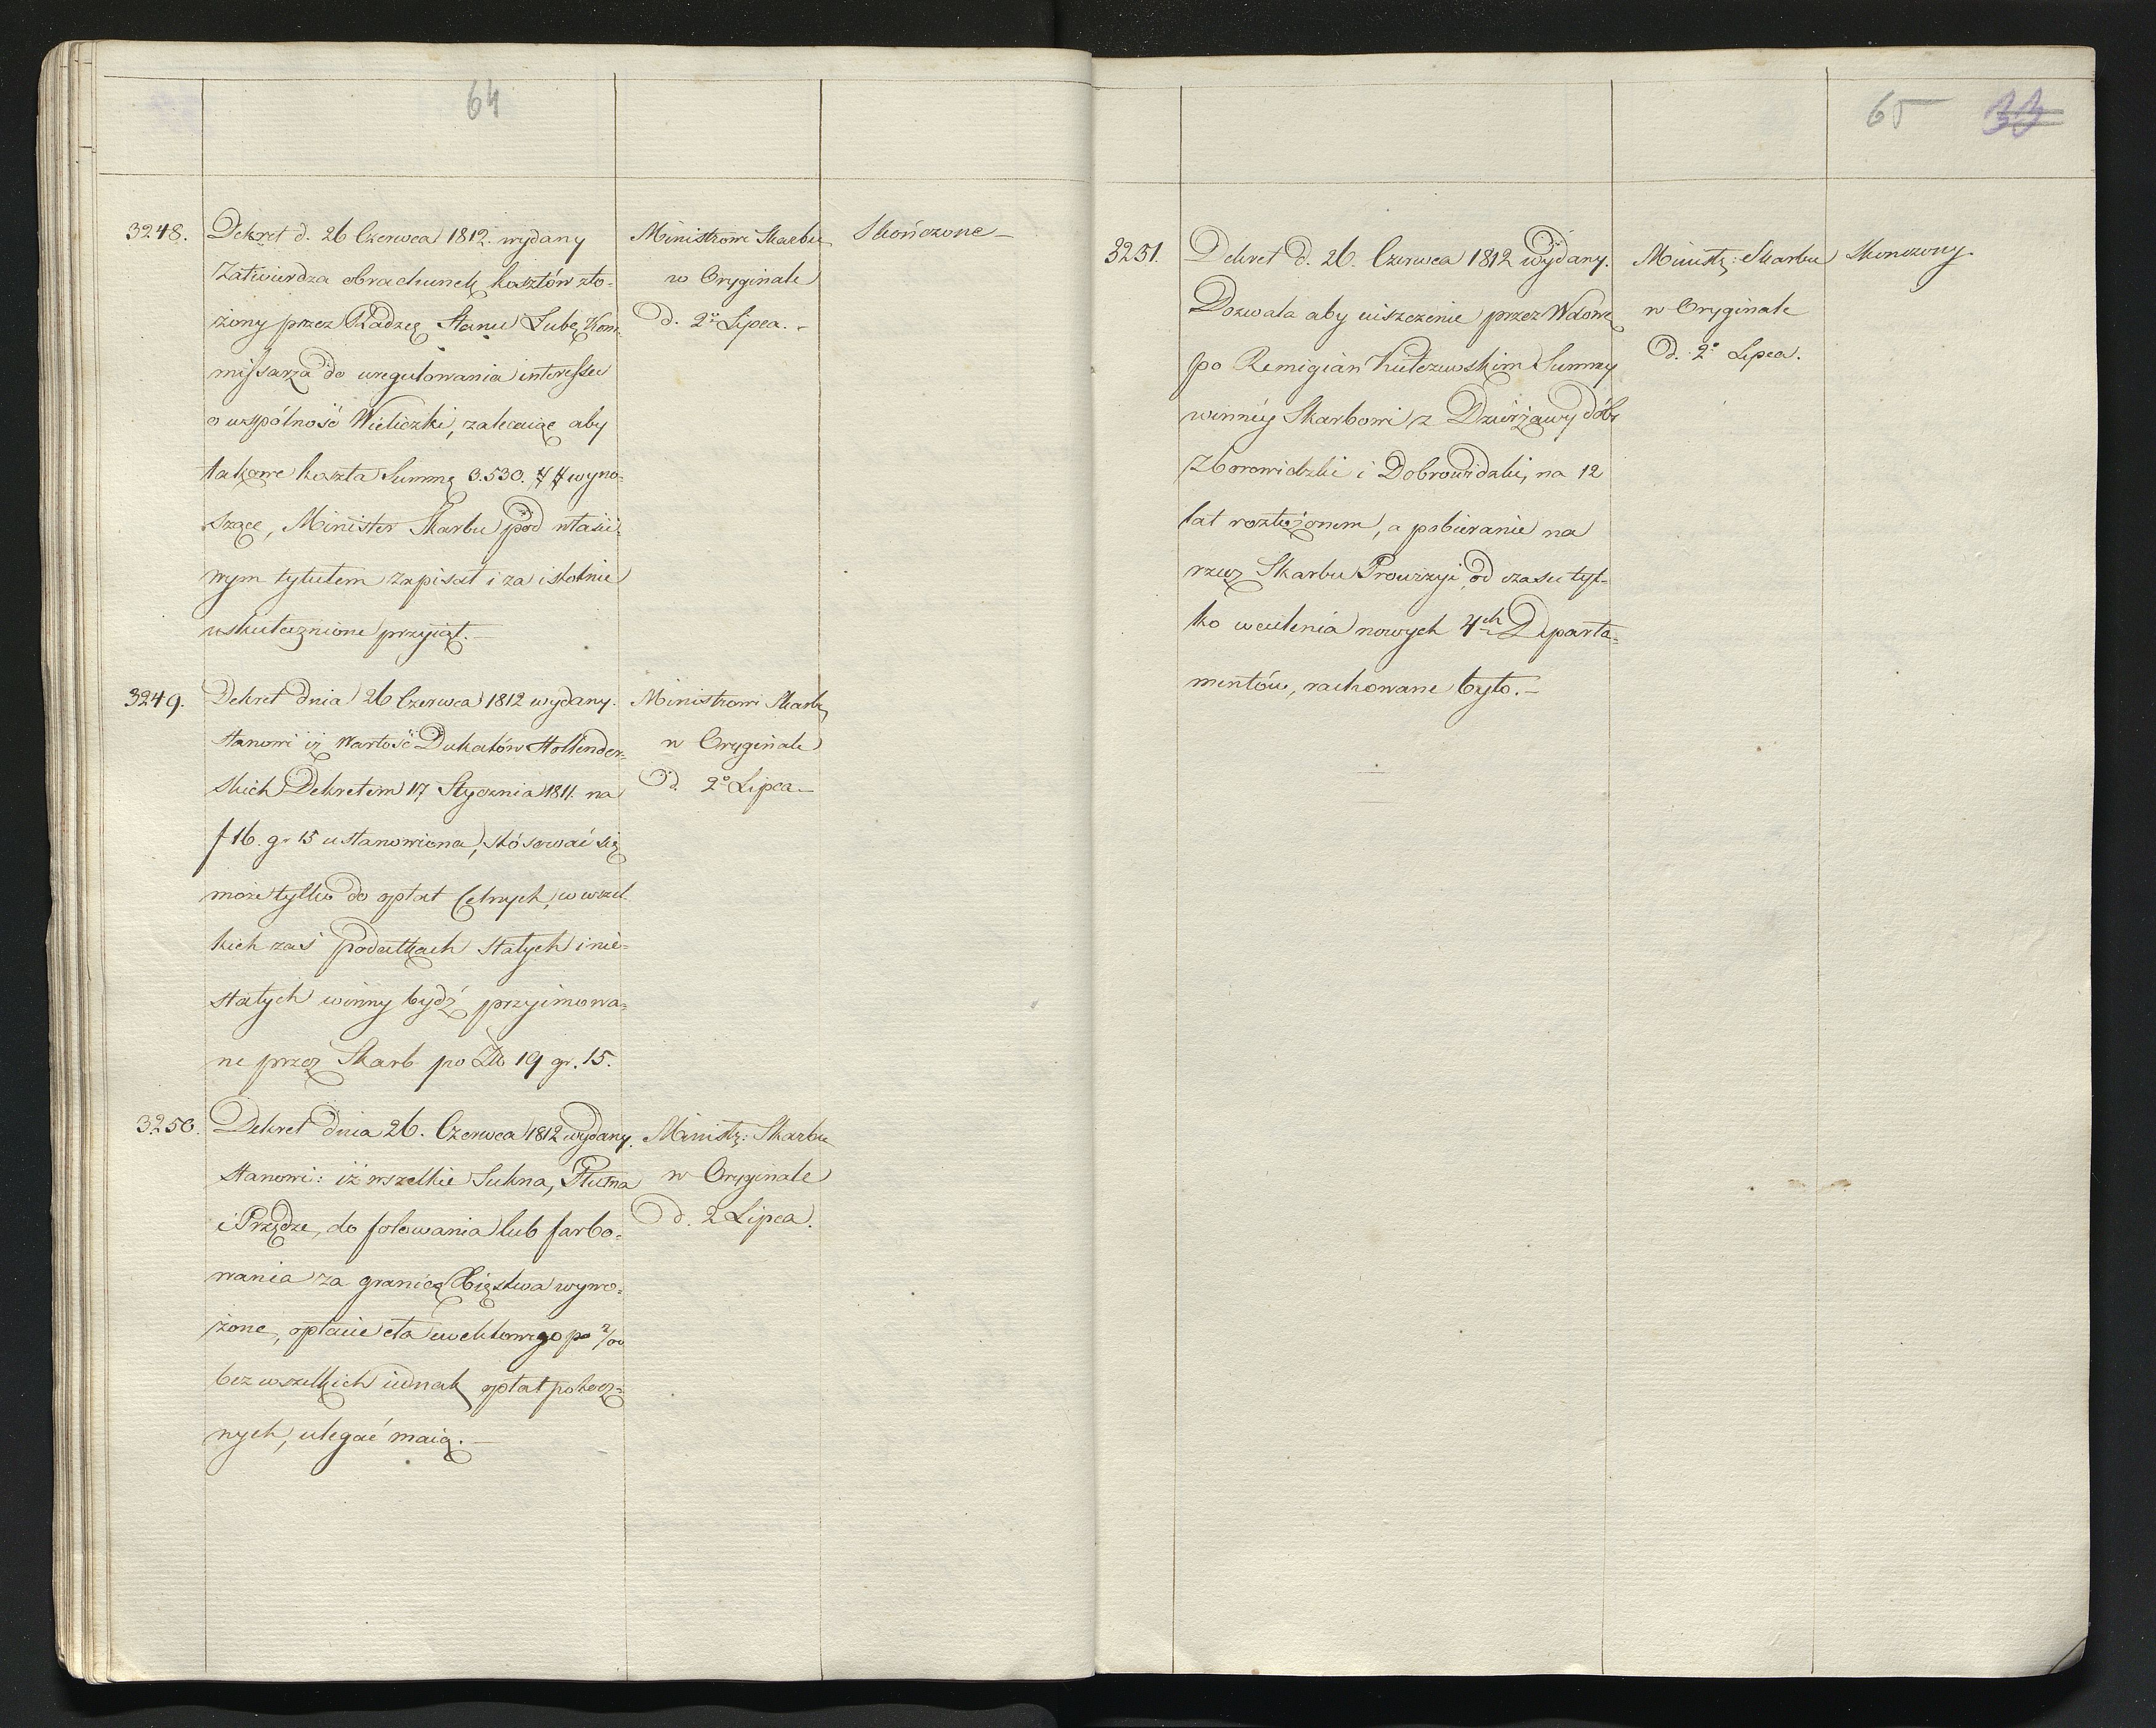 64
3248. Dekret d. 26 Czerwca 1812. wydany
Zatwierdza obrachunek kosztów zło-
żony przez Radzcę Stanu Lubę Kom-
missarza do uregulowania interessu
o wspólność Wieliczki, zalecaiąc aby
takowe koszta Summę 3.530. wyno-
szące, Minister Skarbu pod właści-
wym tytułem zapisał i za istotnie
uskutecznione przyiął.—
Ministrowi Skarbu
w Oryginale
d. 2o Lipca.—
Skończone—
3249. Dekret dnia 26 Czerwca 1812 wydany.
Stanowi iż Wartość Dukatów Hollender-
skich Dekretem 17 Stycznia 1811. na
f 16. gr 15 ustanowiona, stósować się
może tylko do opłat Celnych, w wszel-
kich zaś podatkach stałych i nie-
stałych winny bydź przyimowa-
ne przez Skarb po Zło 19 gr. 15.
Ministrowi Skarbu
w Oryginale
d. 2o Lipca—
3250. Dekret dnia 26. Czerwca 1812 wydany.
Stanowi: iż wszelkie Sukna, Płutna
i Przędze, do folowania lub farbo-
wania za granicę Xięstwa wywo-
żone, opłacie cła ewektowego po 2/00
bez wszelkich iednak opłat pobocz-
nych, ulegać maią.—
Ministr: Skarbu
w Oryginale
d. 2 Lipca.
65 33
3251. Dekret d. 26. Czerwca 1812 wydany.
Dozwala aby uiszczenie przez Wdowę
po Remigian Kułczewskim Summy
winnéy Skarbowi z Dzierżawy dóbr
Zborowidzki i Dobrowidzki, na 12
lat rozłożonem, a pobieranie na
rzecz Skarbu Prowizyi od czasu tyl-
ko wcielenia nowych 4ch Departa-
mentów, rachowane było.—
Ministr: Skarbu
w Oryginale
D. 2o Lipca.
Skonczony